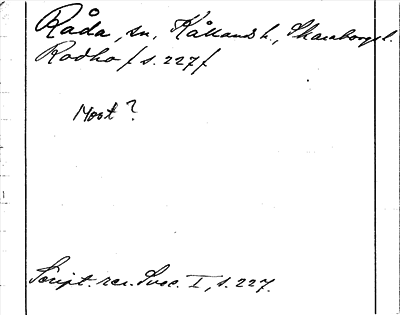 Råda, sn, Kållands h., Skaraborgs l.
Rodho / s. 227 /
Moot?
Script. rer. Svec. I, s. 227.